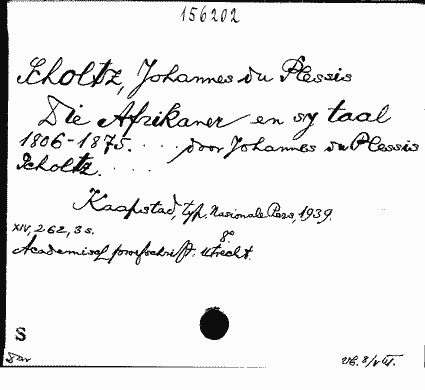 156202
Scholtz, Johannes du Plessis
Die Afrikaner en sy taal
1806-1875. .... door Johannes du Plessis
Scholtz. ....
Kaapstad, typ. Nasionale Pers, 1939.
XIV, 262, 3 s. 8°
Academisch proefschrift: Utrecht.
S